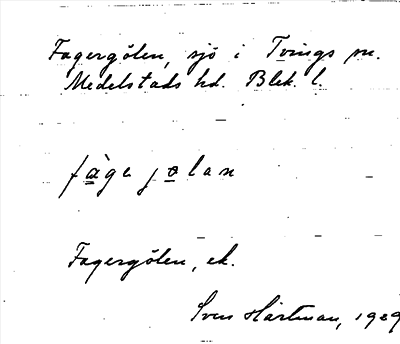 Fagergölen, sjö i Tvings sn.
Medelstads hd. Blek. l.
fàge jolan
Fagergölen, ek.
Sven Hartman, 1929